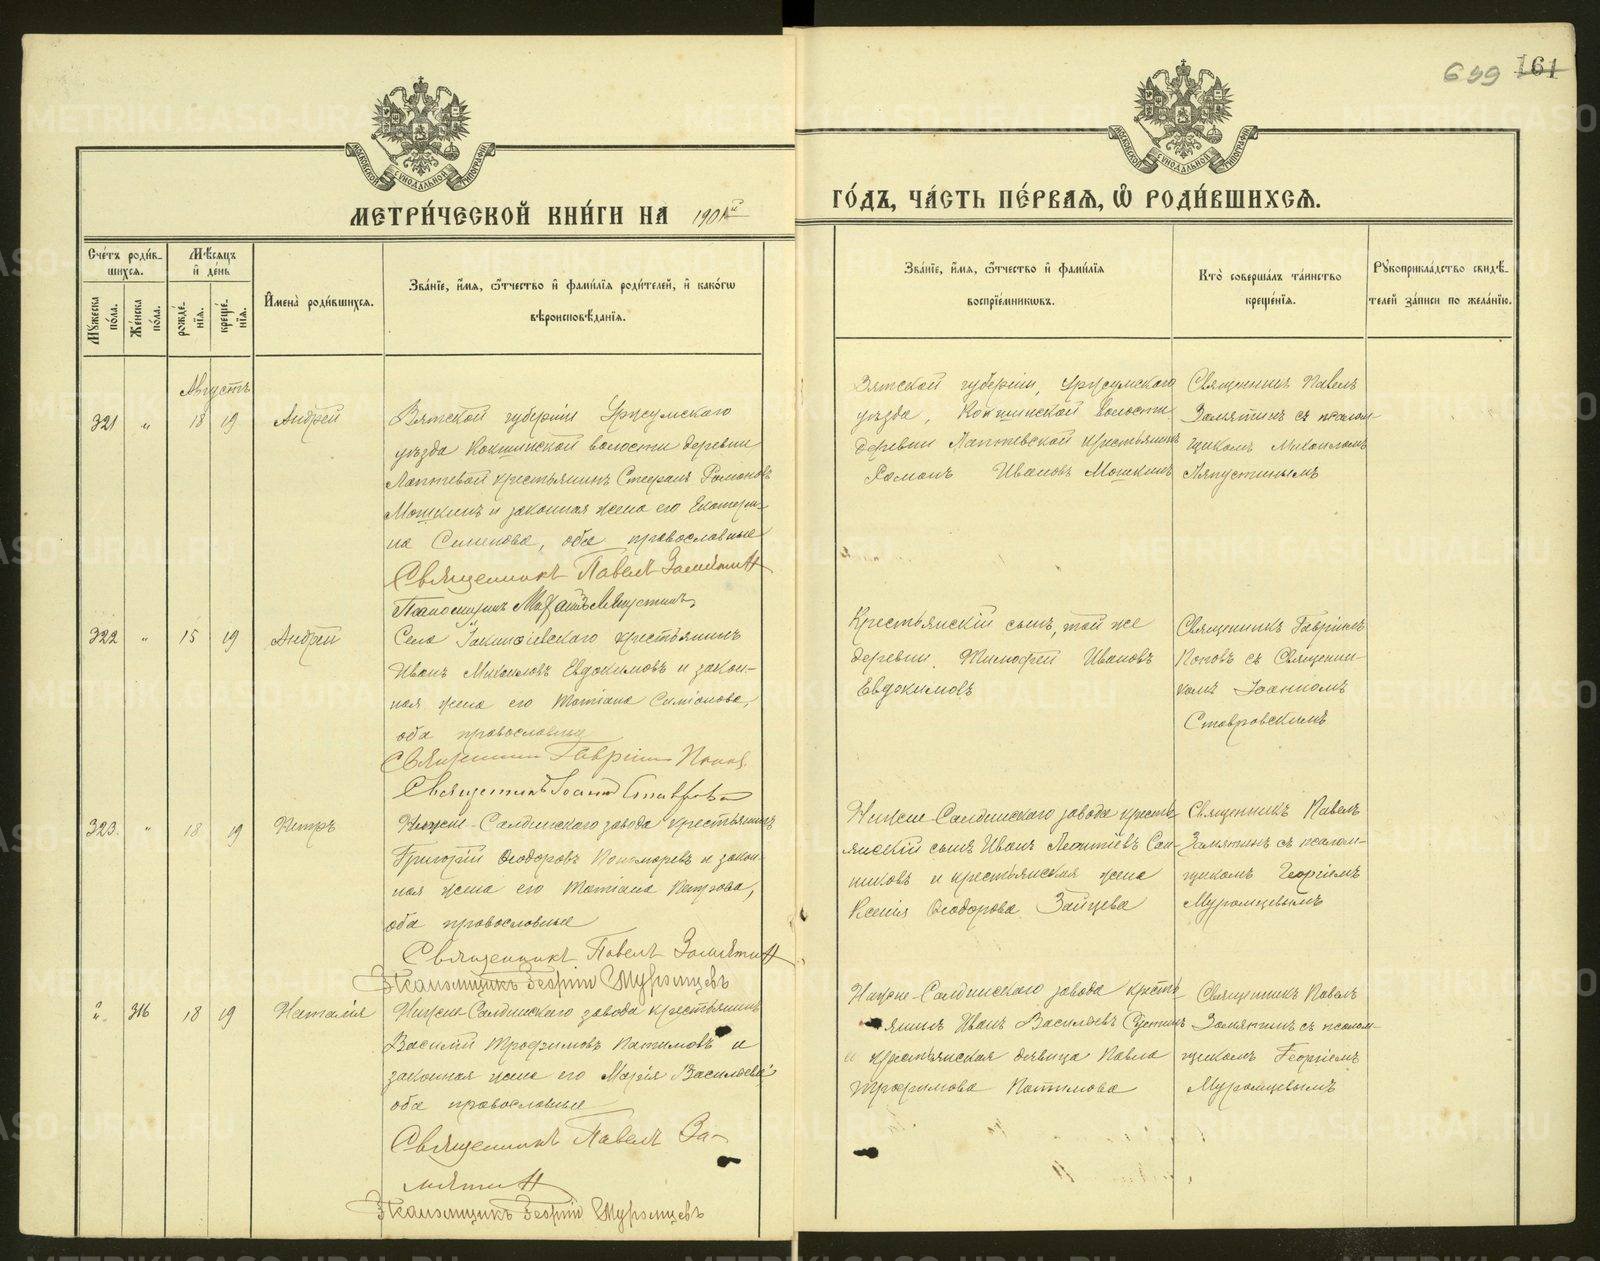 699 161
МОСКОВСКОЙ СѴНОДАЛЬНОЙ ТИПОГРАФІИ
МОСКОВСКОЙ СѴНОДАЛЬНОЙ ТИПОГРАФІИ
МЕТРИ́ЧЕСКОЙ КНИ́ГИ НА 1901й
ГО́ДЪ, ЧА́СТЬ ПЕ́РВАѦ, Ѽ РОДИ́ВШИХСѦ.
Сче́тъ роди́в-
шихся.
Мꙋжеска по́ла.
Же́нска по́ла.
Мѣ́сяцъ
и҆ де́нь
рожде́-
нїя.
креще́-
нїя.
И҆мена̀ роди́вшихся.
Зва́нїе, и҆́мя, ѻ҆́тчество и҆ фами́лїя роди́телей, и҆ како́гѡ
вѣроисповѣ́данїя.
Зва́нїе, и҆́мя, ѻ҆́тчество и҆ фами́лїя
воспрїе́мникѡвъ.
Кто̀ соверша́лъ та́инство
креще́нїя.
Рꙋкоприкла́дство свидѣ́-
телей за́писи по жела́нїю.
Августъ
321 " 18 19 Андрей
Вятской губерніи Уржумскаго
уѣзда Кокшинской волости деревни
Лаптевой крестьянинъ Стефанъ Романовъ
Мошкинъ и законная жена его Екатери-
на Семенова, оба православные
Священникъ Павелъ Замятин
Псаломщикъ Михаилъ Ляпустинъ
Вятской губерніи, Уржумскаго
уѣзда, Кокшинской волости
деревни Лаптевской крестьянинъ
Романъ Ивановъ Мошкинъ
Священникъ Павелъ
Замятинъ съ псалом-
щикомъ Михаиломъ
Ляпустинымъ
322 " 15 19 Андрей
Села Іакинѳіевскаго крестьянинъ
Иванъ Михаиловъ Евдокимовъ и закон-
ная жена его Татіана Симіонова,
оба православны
Священник Гавріил Попов
Священникъ Іоанн Ставровск
Крестьянскій сынъ, той же
деревни, Тимофей Ивановъ
Евдокимовъ
Священникъ Гавріилъ
Поповъ съ Священни-
комъ Іоанномъ
Ставровскимъ
323. " 18 19 Петръ
Нижне-Салдинскаго завода крестьянинъ
Григорій Ѳеодоровъ Пономаревъ и закон-
ная жена его Татіана Петрова,
оба православные
Священникъ Павелъ Замятин
Псаломщикъ Георгій Муромцевъ
Нижне-Салдинскаго завода кресть-
янскій сынъ Иванъ Леонтіевъ Сан-
никовъ и крестьянская жена
Ксенія Ѳеодорова Зайцева
Священникъ Павелъ
Замятинъ съ псалом-
щикомъ Георгіемъ
Муромцевымъ
" 316 18 19 Наталія
Нижне-Салдинскаго завода крестьянинъ
Василій Трофимовъ Патимовъ и
законная жена его Марія Васильева
оба православные
Священникъ Павелъ За-
мятин
Псаломщикъ Георгій Муромцевъ
Нижне-Салдинскаго завода кресть-
янинъ Иванъ Василіевъ
и крестьянская дѣвица Павла
Трофимова Патимова
Священникъ Павелъ
Замятинъ съ псалом-
щикомъ Георгіемъ
Муромцевымъ
METRIKI.GASO-URAL.RU